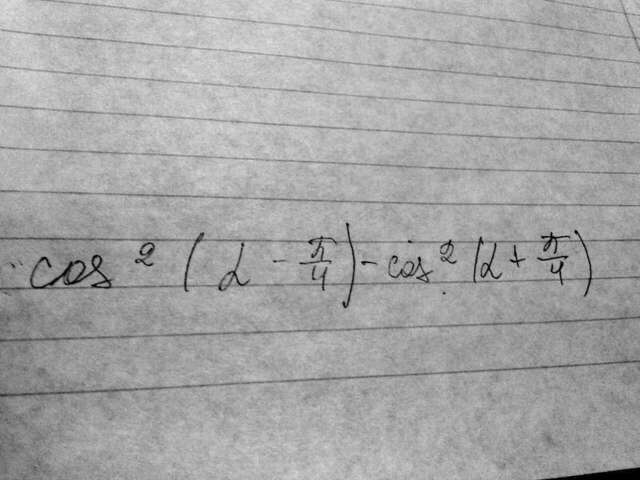 cos² (α - π/4) - cos² (α + π/4)